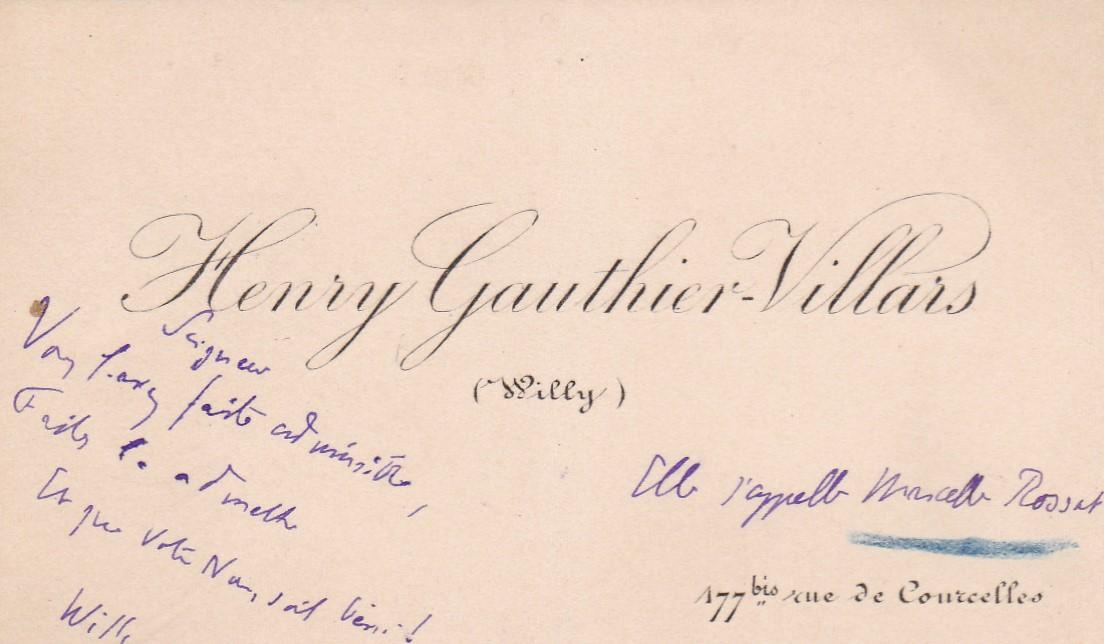 Henry Gauthier-Villars
(Willy)
Seigneur
Vous l'avez faite admissible,
Faites la admettre
Et que votre Nom soit béni !
Willy
Elle s'appelle Marcelle Rossat
177 bis rue de Courcelles